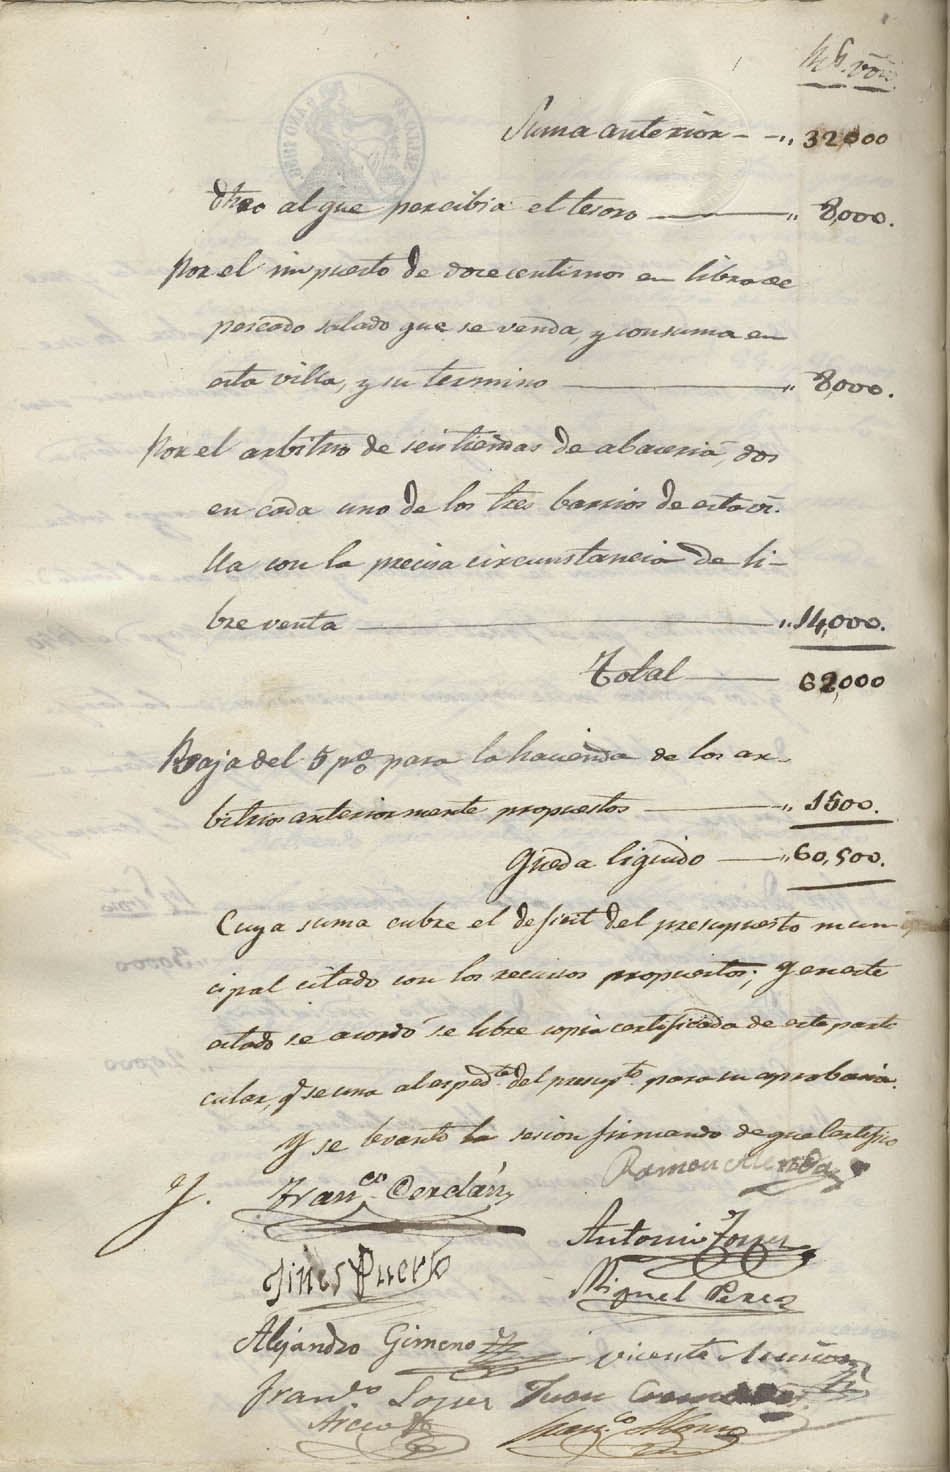 Rs. von.
Suma anterior - - „ 32,000
Otro al que percibia el tesoro „ 8,000.
Por el impuesto de doce centimos en libra de
pescado salado que se venda, y consuma en
esta villa, y su termino „ 8,000.
Por el arbitrio de seis tiendas de abaceria, dos
en cada uno de los tres barrios de esta vi-
lla con la precisa circunstancia de li-
bre venta „ 14,000.
Total 62,000
Baja del 5 p% para la hacienda de los ar-
bitrios anteriormente propuestos „ 1500.
Queda liquido „ 60,500.
Cuya suma cubre el deficit del presupuesto muni-
cipal citado con los recursos propuestos; y en este
estado se acordó se libre copia certificada de este parti
cular, y se una al espedte. del presupto. para su aprobacion.
Y se levantó la sesion firmando de que Certifico
Ramon
Franco. Cerdán
Antonio Torres
Gines Puerto
Miguel Perez
Alejandro Gimeno
Vicente Muñoz
Frando. Lopez Juan
Arcos
Franco. Alfonso